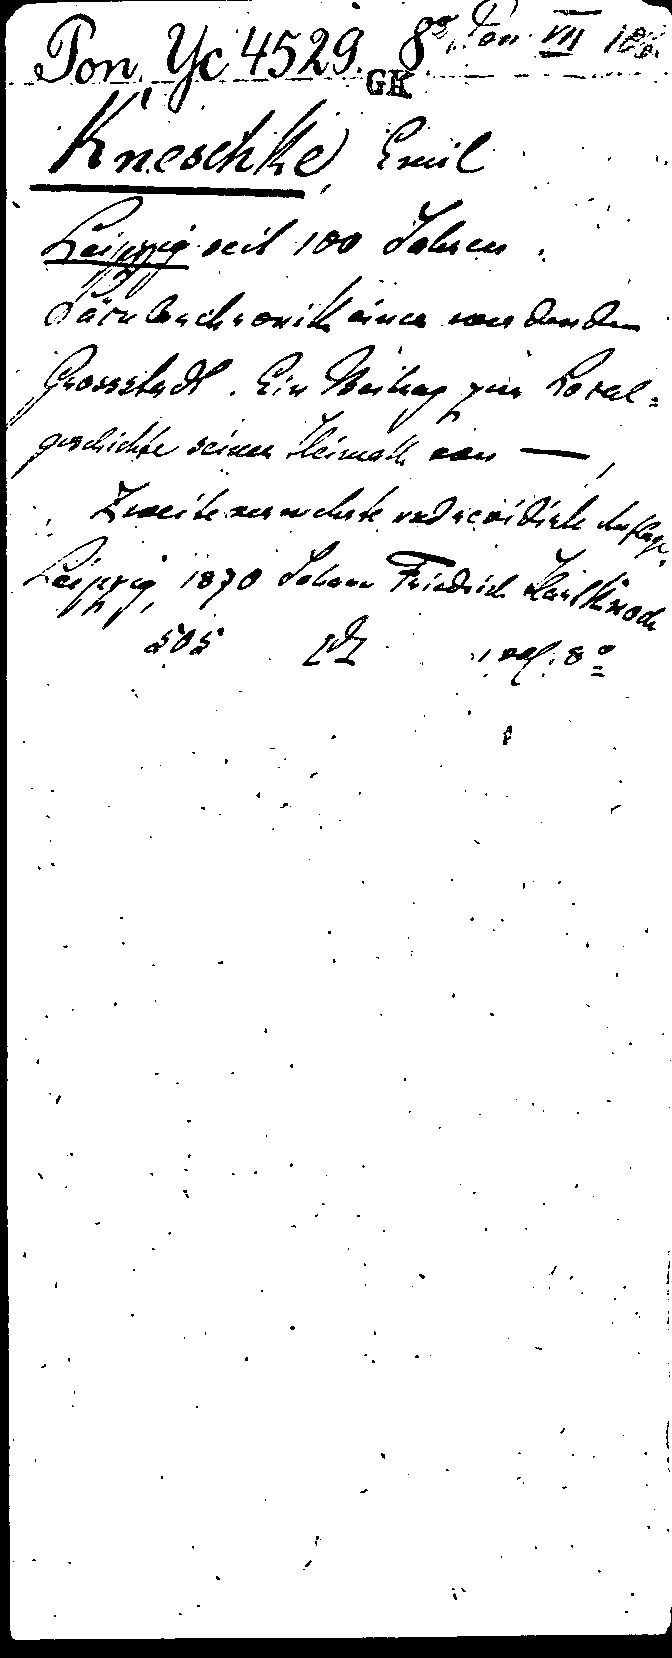 Pon Yc 4529. 8º Pon VII
GK
Kneschke, Emil
Leipzig seit 100 Jahren.
Säcularchronik einer werdenden
Grossstadt. Ein Beitrag zur Local-
geschichte seiner Heimath von —,
Zweite vermehrte und revidirte Auflage.
Leipzig, 1870 Johann Friedrich
505 1 vol. 8º